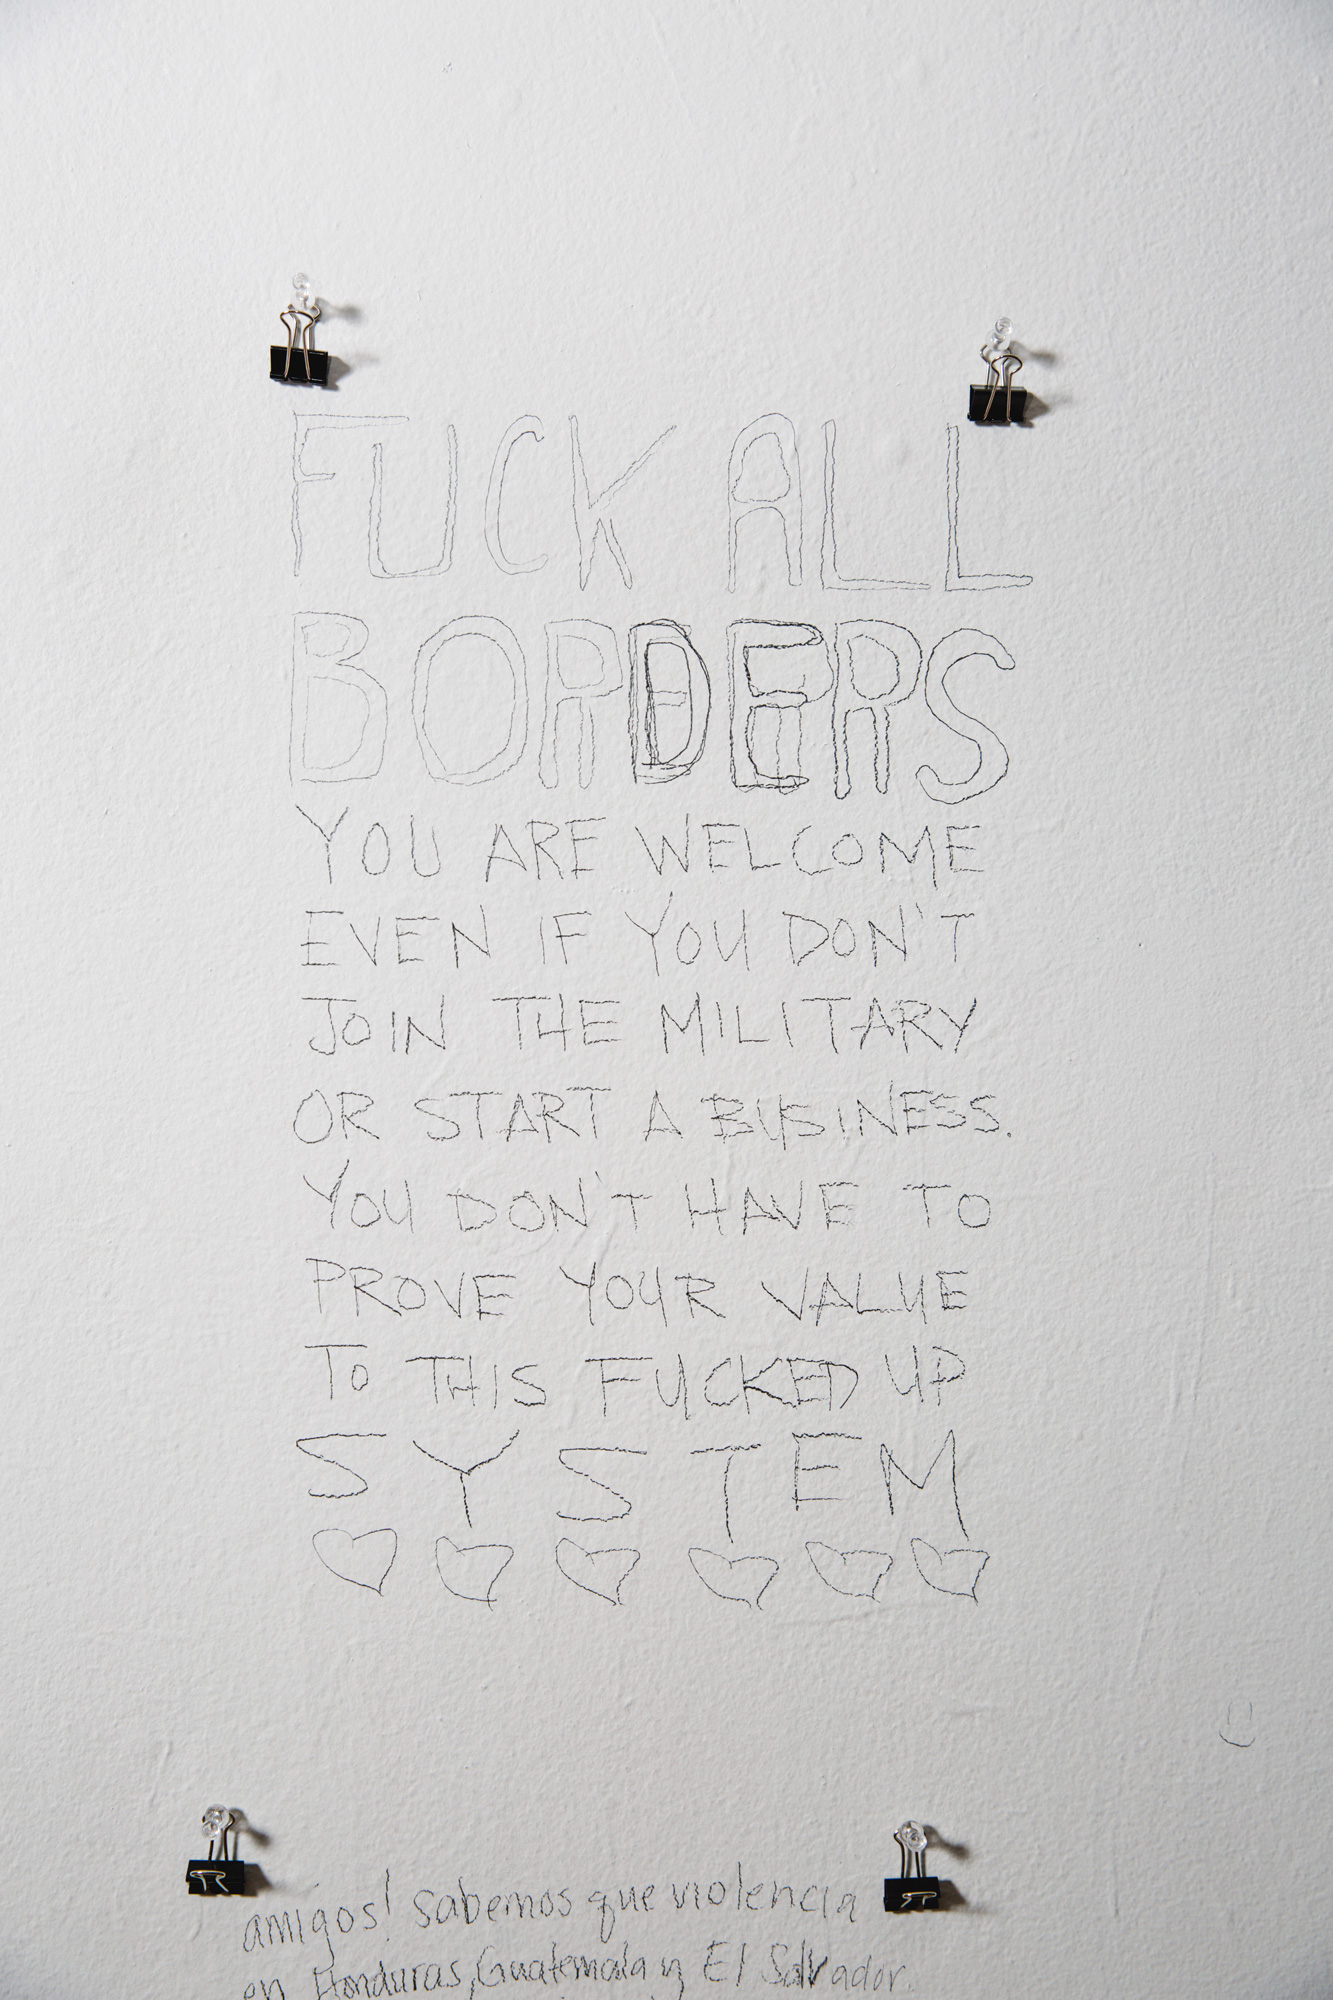 FUCK ALL
BORDERS
YOU ARE WELCOME
EVEN IF YOU DON'T
JOIN THE MILITARY
OR START A BUSINESS.
YOU DON'T HAVE TO
PROVE YOUR VALUE
TO THIS FUCKED UP
SYSTEM
amigos! sabemos que violencia
en Honduras, Guatemala y El Salvador.